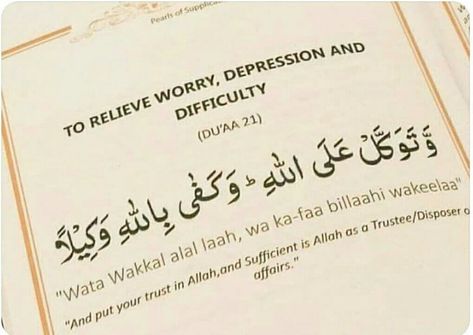 Pearls of Supplica
TO RELIEVE WORRY, DEPRESSION AND
DIFFICULTY
(DU'AA 21)
وَّ تَوَكَّلْ عَلَى اللّٰهِ ؕ وَ كَفٰى بِاللّٰهِ وَكِيْلًا
"Wata Wakkal alal laah, wa ka-faa billaahi wakeelaa"
"And put your trust in Allah,and Sufficient is Allah as a Trustee/Disposer o
affairs."